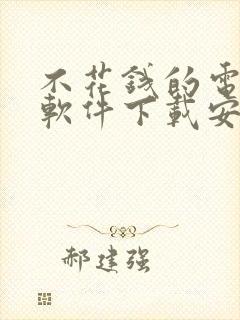 不花錢的電
軟件下載安
郝建强